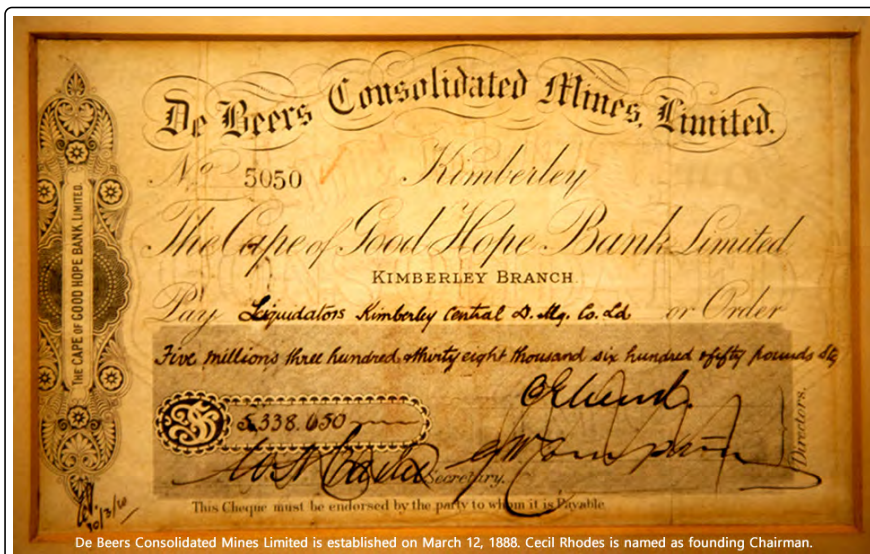 De Beers Consolidated Mines, Limited.
No 5050 Kimberley
THE CAPE OF GOOD HOPE BANK, LIMITED.
The Cape of Good Hope Bank Limited
KIMBERLEY BRANCH.
Pay Liquidators Kimberley Central D. Mg. Co. Ld or Order
Five millions three hundred & thirty eight thousand six hundred & fifty pounds Stg
£5.338.650
Directors.
Secretary.
This Cheque must be endorsed by the party to whom it is Payable.
De Beers Consolidated Mines Limited is established on March 12, 1888. Cecil Rhodes is named as founding Chairman.